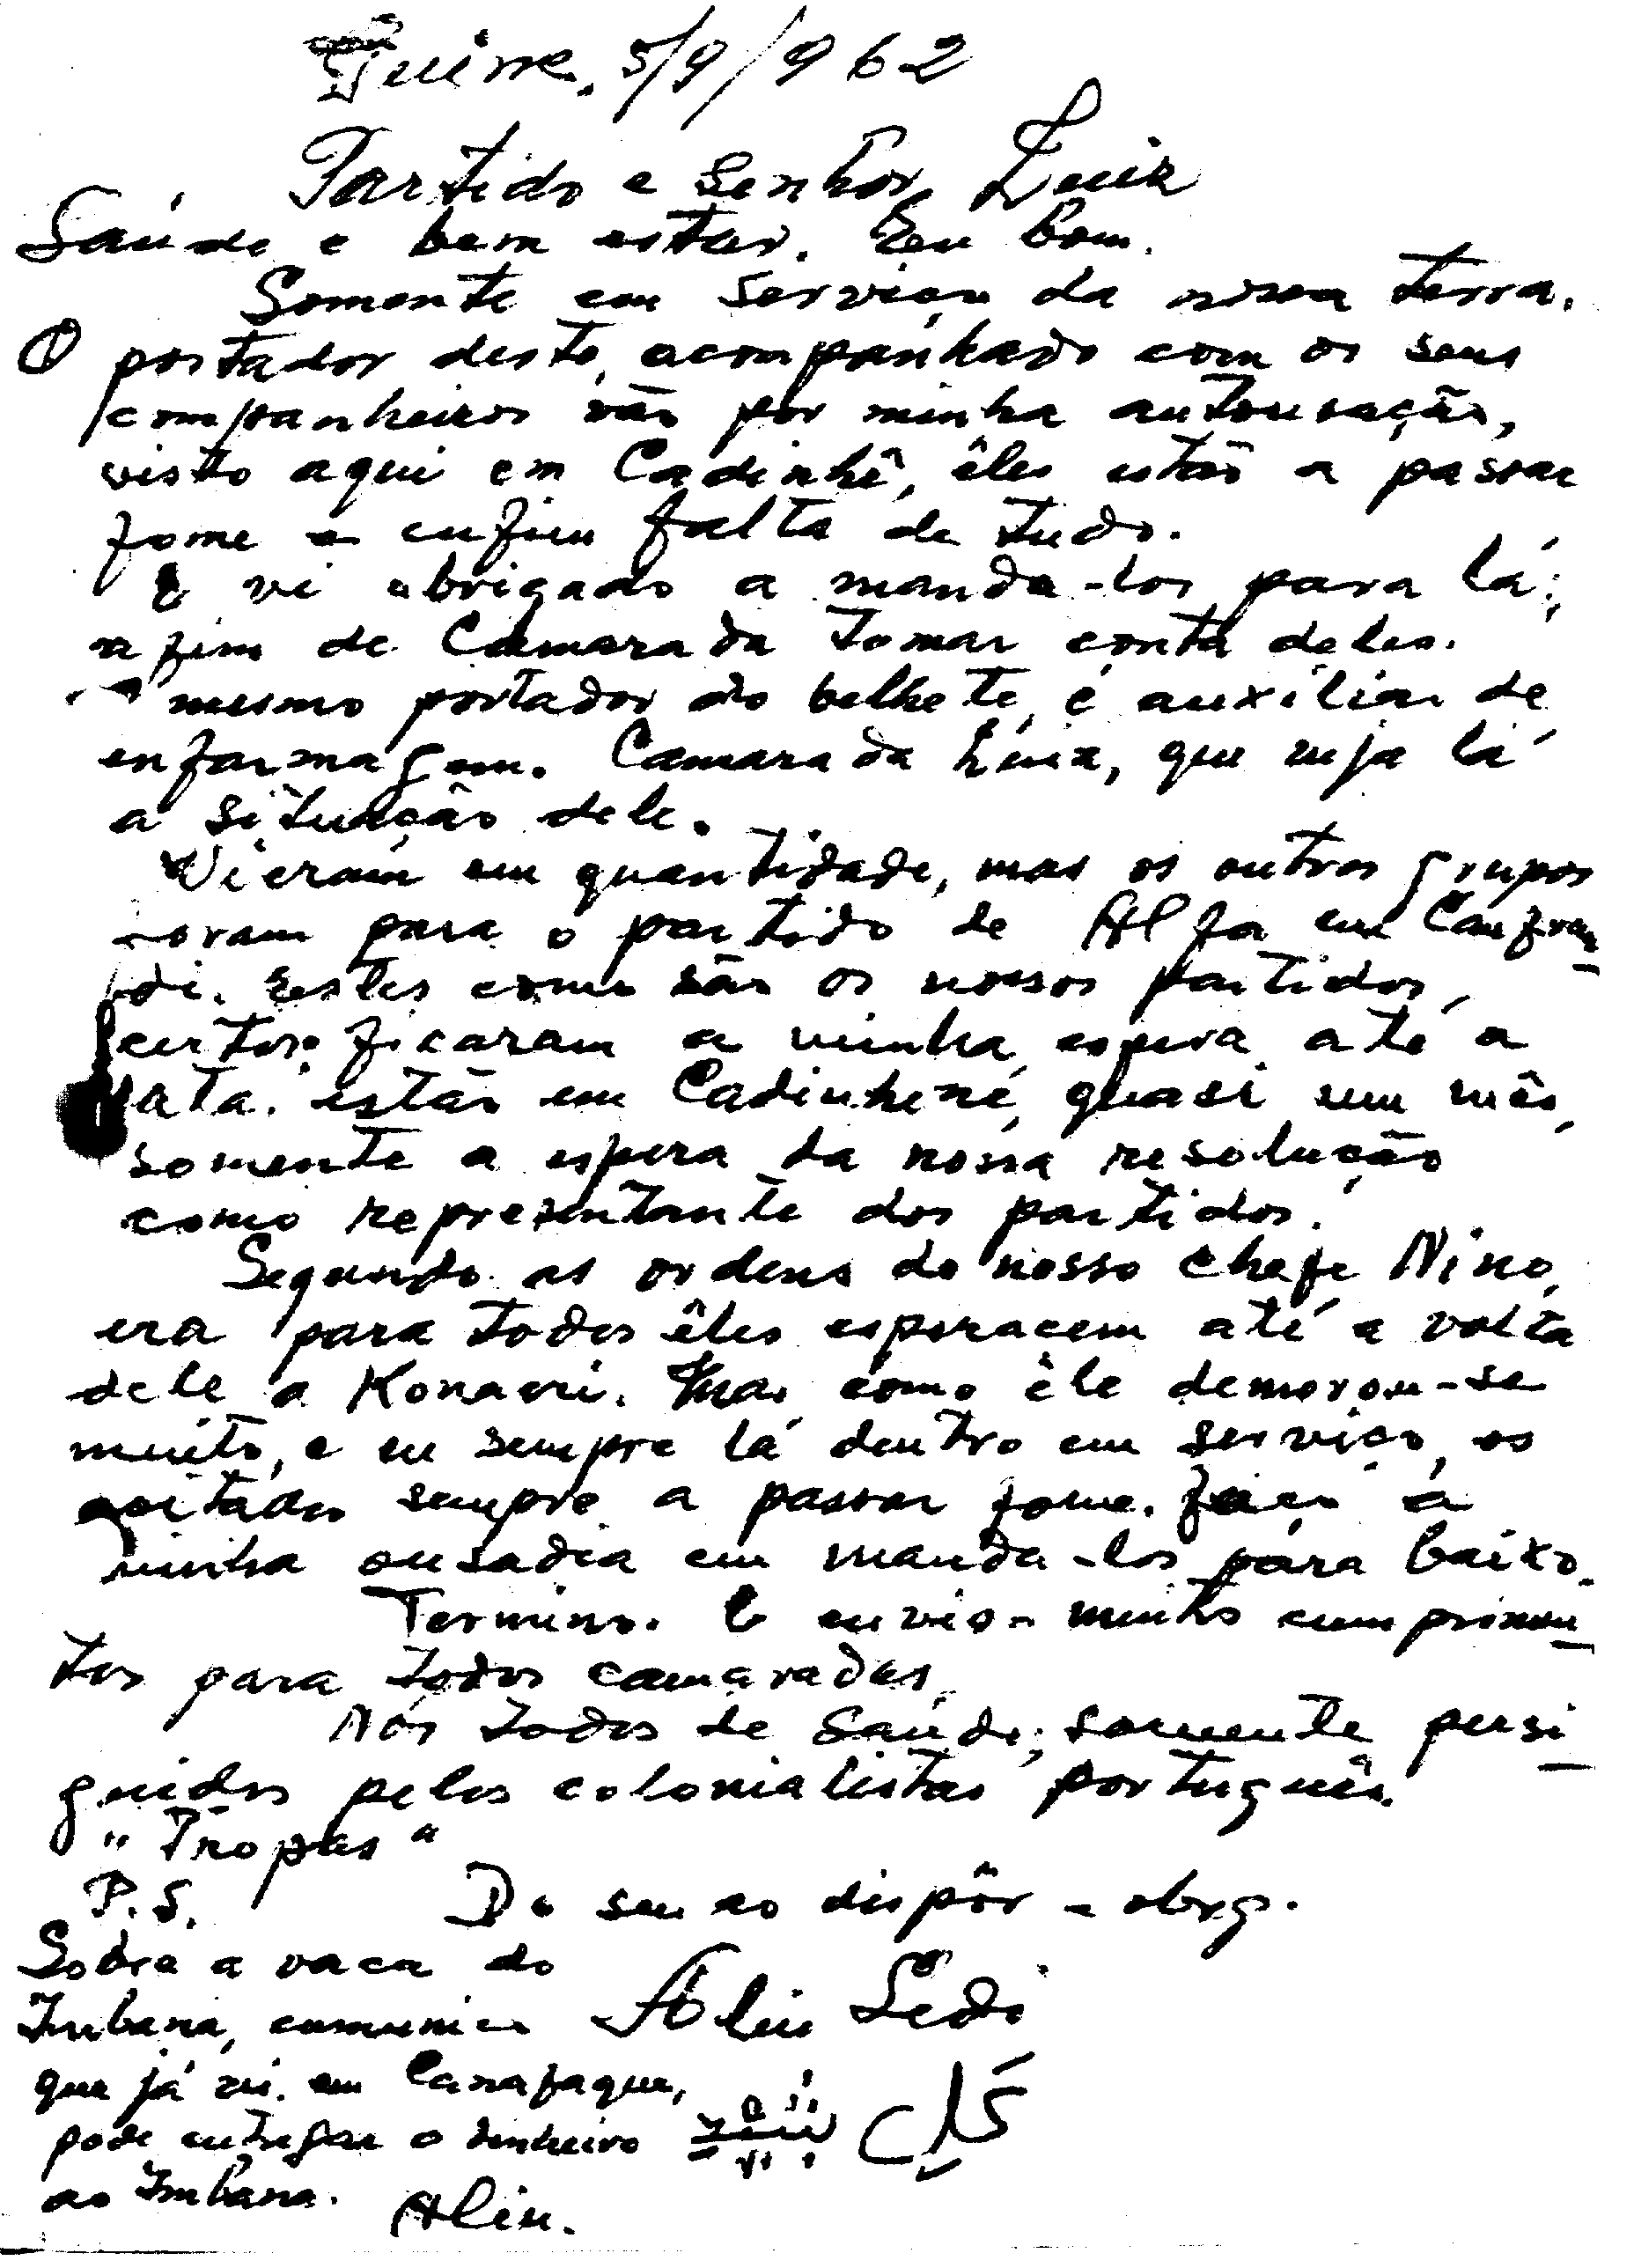 Guirre, 5/9/962
Partido e Senhor Luiz
Saúde e bem estar. Eu bom.
Somente em serviço da nossa terra.
O portador deste, acompanhado com os seus
companheiros vão por minha autorisação,
visto aqui em Cadinhê, êles estão a passar
fome e enfim falta de tudo.
E vi obrigado a manda-los para lá;
a fim de Camarada tomar conta deles.
O mesmo portador do belhete, é auxiliar de
enfarmagem. Camarada Luiz, que veja lá
a situação dele.
Vieram em quantidade, mas os outros grupos
foram para o partido de Alfa em Canfran-
di. Estes como são os nossos partidos,
certos; ficaram a minha espera até a
data. estão em Cadinhené, quasi um mês,
somente a espera da nossa resolução
como representante dos partidos.
Segundo as ordens do nosso chefe Nino,
era para todos êles esperacem até a volta
dele a Konacri. Mas como êle demorou-se
muito, e eu sempre lá dentro em serviço, os
coitados sempre a passar fome. faço a
minha ousadia em manda-los para baixo.
Termino. E envio muito cumprimen-
tos para todos camaradas,
Nós todos de Saúde, somente persi-
guidos pelos colonialistas português.
"Tropas"
P.S. De seu ao dispôr - obrg.
Sobre a vaca do
Imbana, comunico Aliu Sedi
que já vi. em Canafaque,
pode entregar o dinheiro
ao Imbana.
Aliu.